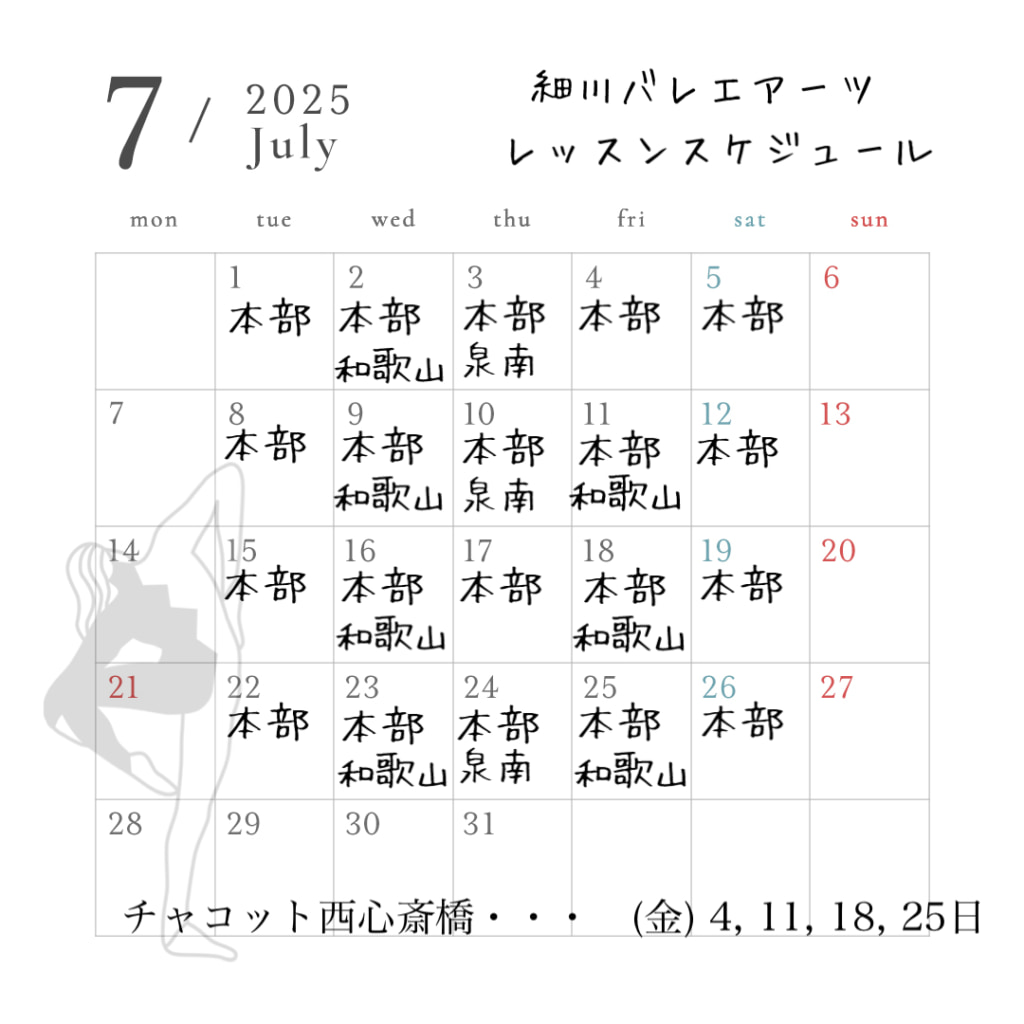 7 / 2025
July
細川バレエアーツ
レッスンスケジュール
mon tue wed thu fri sat sun
1 2 3 4 5 6
本部 本部 本部 本部 本部
和歌山 泉南
7 8 9 10 11 12 13
本部 本部 本部 本部 本部
和歌山 泉南 和歌山
14 15 16 17 18 19 20
本部 本部 本部 本部 本部
和歌山 和歌山
21 22 23 24 25 26 27
本部 本部 本部 本部 本部
和歌山 泉南 和歌山
28 29 30 31
チャコット西心斎橋・・・ (金) 4, 11, 18, 25日